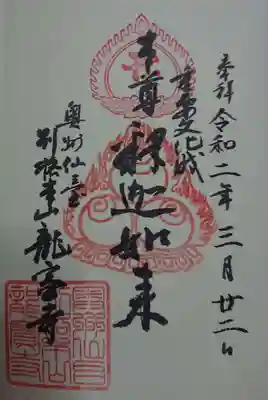 奉拝 令和二年三月廿二日
重要文化財
本尊 釈迦如来
奥州仙台
別格本山 龍宝寺